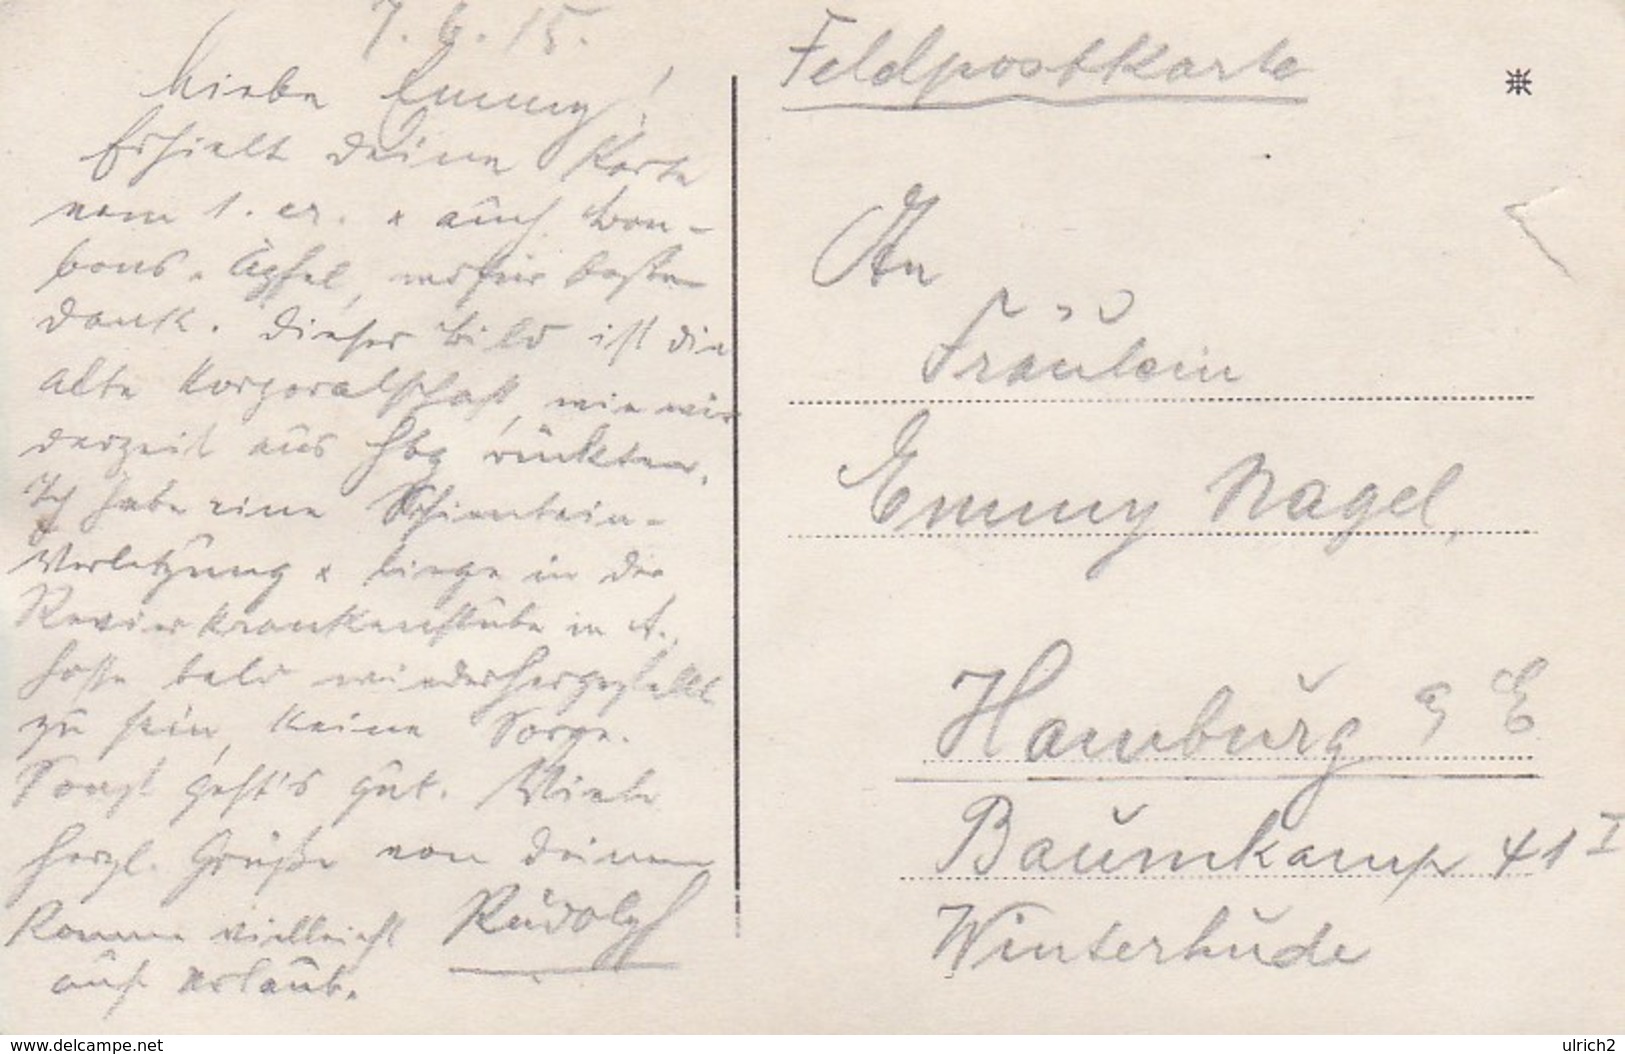 7. 6. 15.
Liebe Emmy!
Erhielt deine Karte
vom 1. er. & auch Bon-
bons & Äpfel, wofür besten
Dank. Dieses Bild ist die
alte Korporalschaft, wie wir
derzeit aus Hbg rückten.
Ich habe eine Schienbein-
Verletzung & liege in der
Revierkrankenstube in A.,
hoffe bald wiederhergestellt
zu sein, keine Sorge.
Sonst geht's gut. Viele
herzl. Grüße von Deinem
Rudolph
Komme vielleicht
auf Urlaub.
Feldpostkarte
An
Fräulein
Emmy Nagel,
Hamburg
Baumkamp 41 I
Winterhude
www.delcampe.net
ulrich2